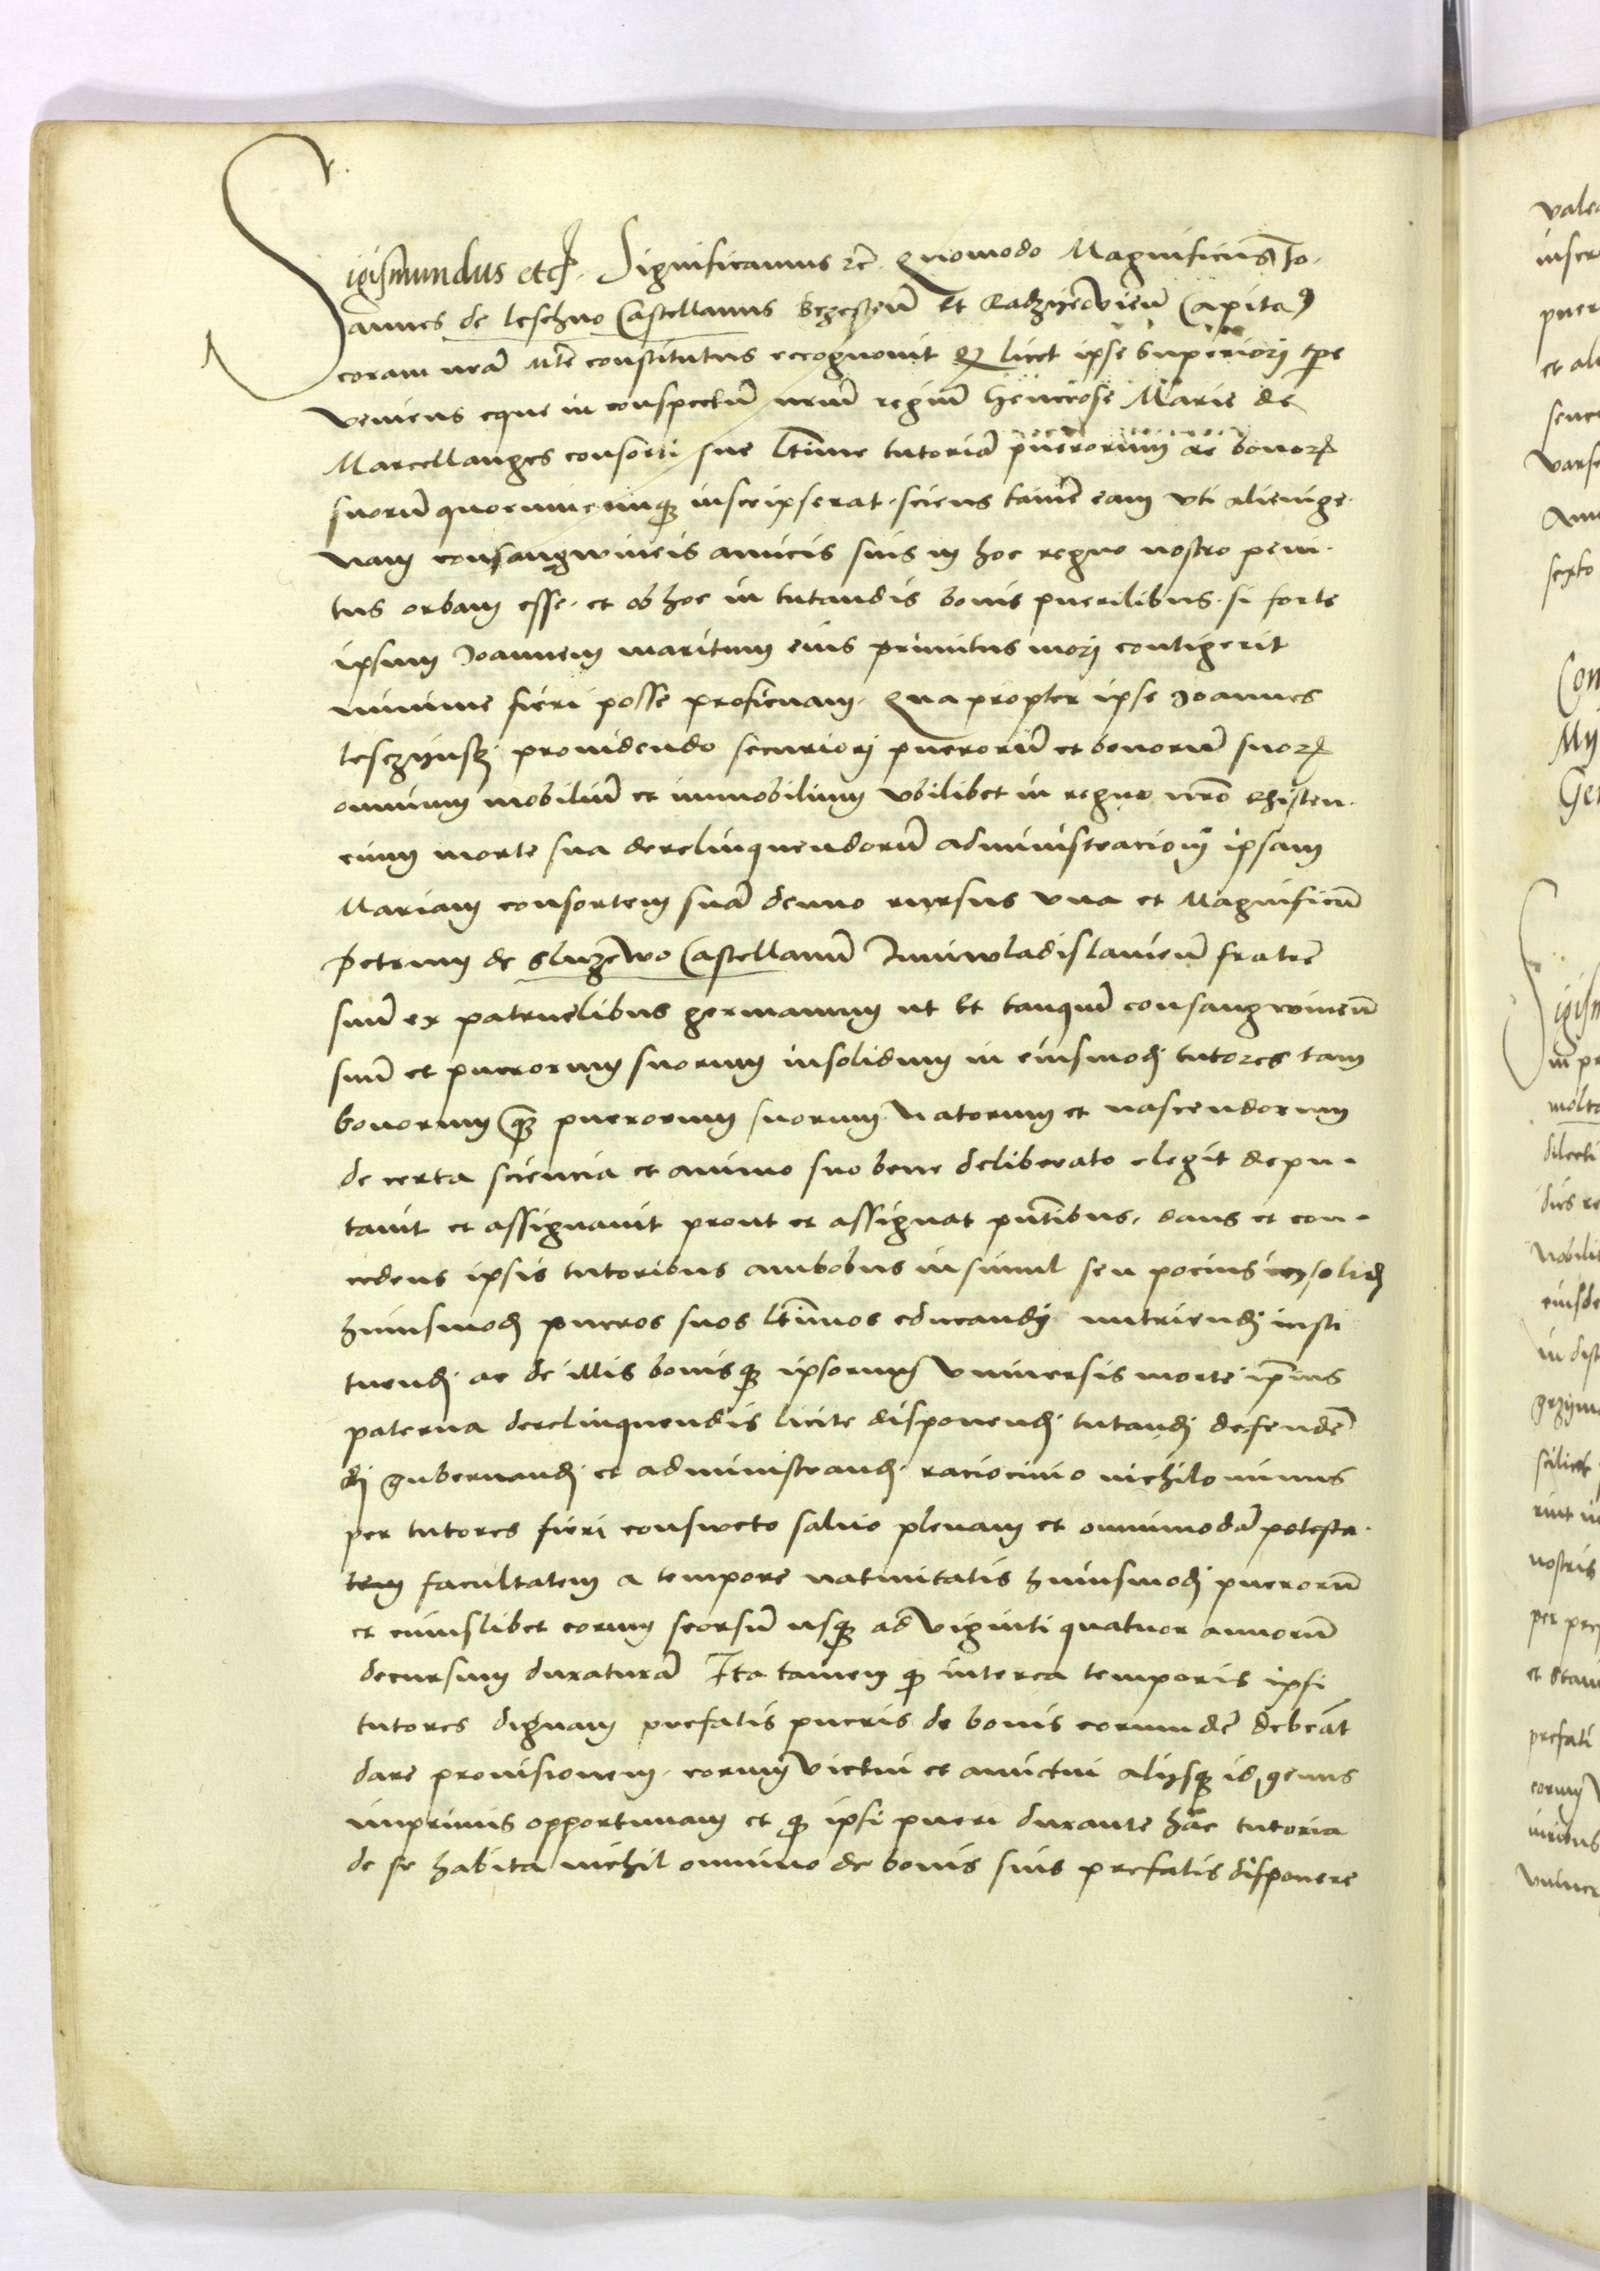 Sigismundus etc. Significamus etc. Quomodo Magnificus Jo-
annes de Leschno Castellanus Brzesteñ Et Radzÿeÿovieñ Capita9
coram nrã Mte constitutus recognouit q licet ipse Superiorj tpe
veniens eque in conspectũ nrũm regiũ Generose Marie de
Marcellanges consorti sue ltime tutoriã puerorum ac bonorꝝ
suorũ quorumcunqȝ inscripserat. sciens tamẽ eam vti alienige-
nam consangwineis amicis suis in hoc regno nostro peni-
tus orbam esse. et ob hoc in tutandis bonis puerilibus. si forte
ipsum Joannem maritum eius primitus morj contigerit
minime fieri posse proficuam. Quapropter ipse Joannes
lesczÿnskj prouidendo securiorj puerorũ et bonorũ suorꝝ
omnium mobiliũ et immobilium vbilibet in regno nrõ existen-
cium morte sua derelinquendorũ administracionj ipsam
Mariam consortem suã denuo rursus vna et Magnificũ
Petrum de Sluzewo Castellanũ Juniwladislauieñ fratrẽ
suũ ex patruelibus germanum ut Et tanquã consangwineũ
suũ et puerorum suorum insolidum in eiusmodj tutores tam
bonorum qȝ puerorum suorum natorum et nascendorum
de certa sciencia et animo suo bene deliberato elegit depu-
tauit et assignauit prout et assignat pñtibus. dans et con-
cedens ipsis tutoribus ambobus insimul seu pocius insolidũ
huiusmodj pueros suos ltimos educandj nutriendj insti
tuendj ac de illis bonisqȝ ipsorum vniuersis morte ipsius
paterna derelinquendis licite disponendj tutandj defendẽ
dj gubernandj et administrandj raciocinio nichilominus
per tutores fieri consweto saluo plenam et omnimodã potesta-
tem facultatem a tempore natiuitatis huiusmodj puerorũ
et cuiuslibet eorum seorsũ usqȝ ad viginti quatuor annorũ
decursum duraturã Ita tamen qȝ interea temporis ipsi
tutores dignam prefatis pueris de bonis eorumdẽ debeãt
dare prouisionem. eorum victui et amictui alijsqȝ id genus
imprimis opportunam et qȝ ipsi pueri durante hac tutoria
de se habita nichil omnino de bonis suis prefatis disponere